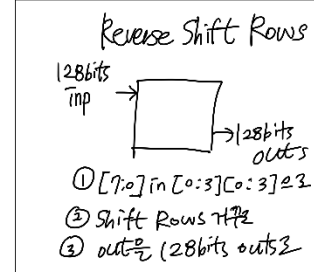 Reverse Shift Rows
128bits
inp
128bits
outs
① [7:0] in [0:3][0:3]으로
② Shift Rows 거꾸로
③ out을 128bits outs로